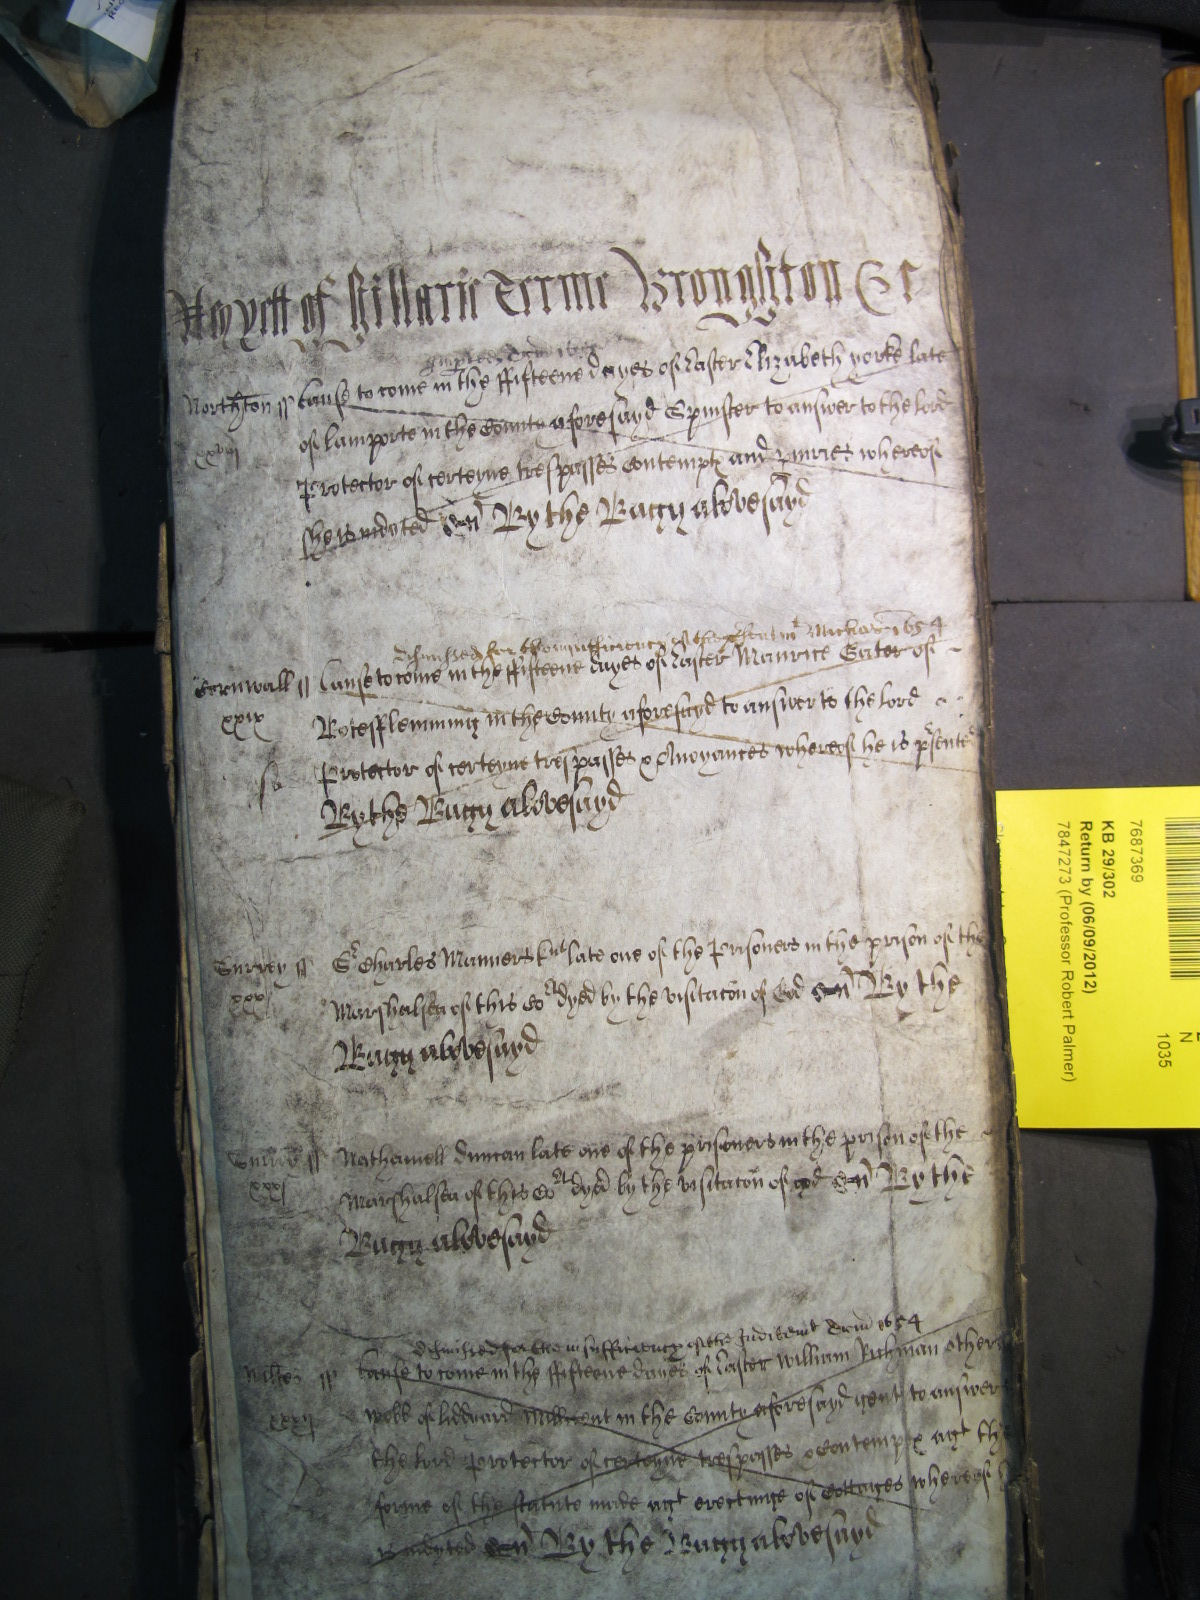 yett of Hillarie Terme Broughton &c
Northton ss Cause to come in the ffifteene dayes of Easter Elizabeth yorke late
xxviij of Lamporte in the County aforesayd Spinster to answer to the lord
Protector of certeyne trespasses contempts and iniuries whereof
she is indyted By the Bagg abovesayd
dismissed for the insufficiency of the Michas 1654
Cornwall ss Cause to come in the ffifteene dayes of Easter Maurice Gater of
xxix Botesflemming in the County aforesayd to answer to the lord
Protector of certeyne trespasses & Anoyances whereof he is psented
By the Bagg abovesayd
Surrey ss Sr Charles Manners knt late one of the Prisoners in the prison of the
xxx Marshalsea of this Cort dyed by the visitacon of God By the
Bagg abovesayd
Surrey ss Nathaniell Duncan late one of the prisoners in the prison of the
xxxj Marshalsea of this Cort dyed by the visitacon of god By the
Bagg abovesayd
dismissed for the insufficiency of the Indictmt 1654
Wiltes ss Cause to come in the ffifteene dayes of Easter William Richman others
xxxij Webb of Liddyard Millicent in the County aforesayd gent to answer
the lord Protector of certeyne trespasses & Contempts agt the
forme of the statute made agt erectinge of Cottages whereof
is indyted By the Bagg abovesayd
7687369
KB 29/302
Return by (06/09/2012)
7847273 (Professor Robert Palmer)
N
1035